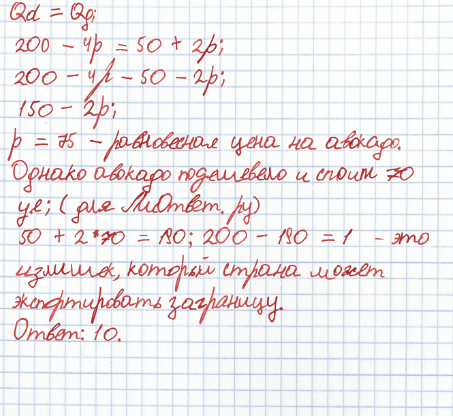 Qd = Qs;
200 - 4p = 50 + 2p;
200 - 4p - 50 - 2p;
150 - 2p;
p = 75 - равновесная цена на авокадо.
Однако авокадо подешевело и стоит 70
у.е; (для ЛиОтвет.ру)
50 + 2*70 = 190; 200 - 190 = 1 - это
излишек, который страна может
экспортировать заграницу.
Ответ: 10.